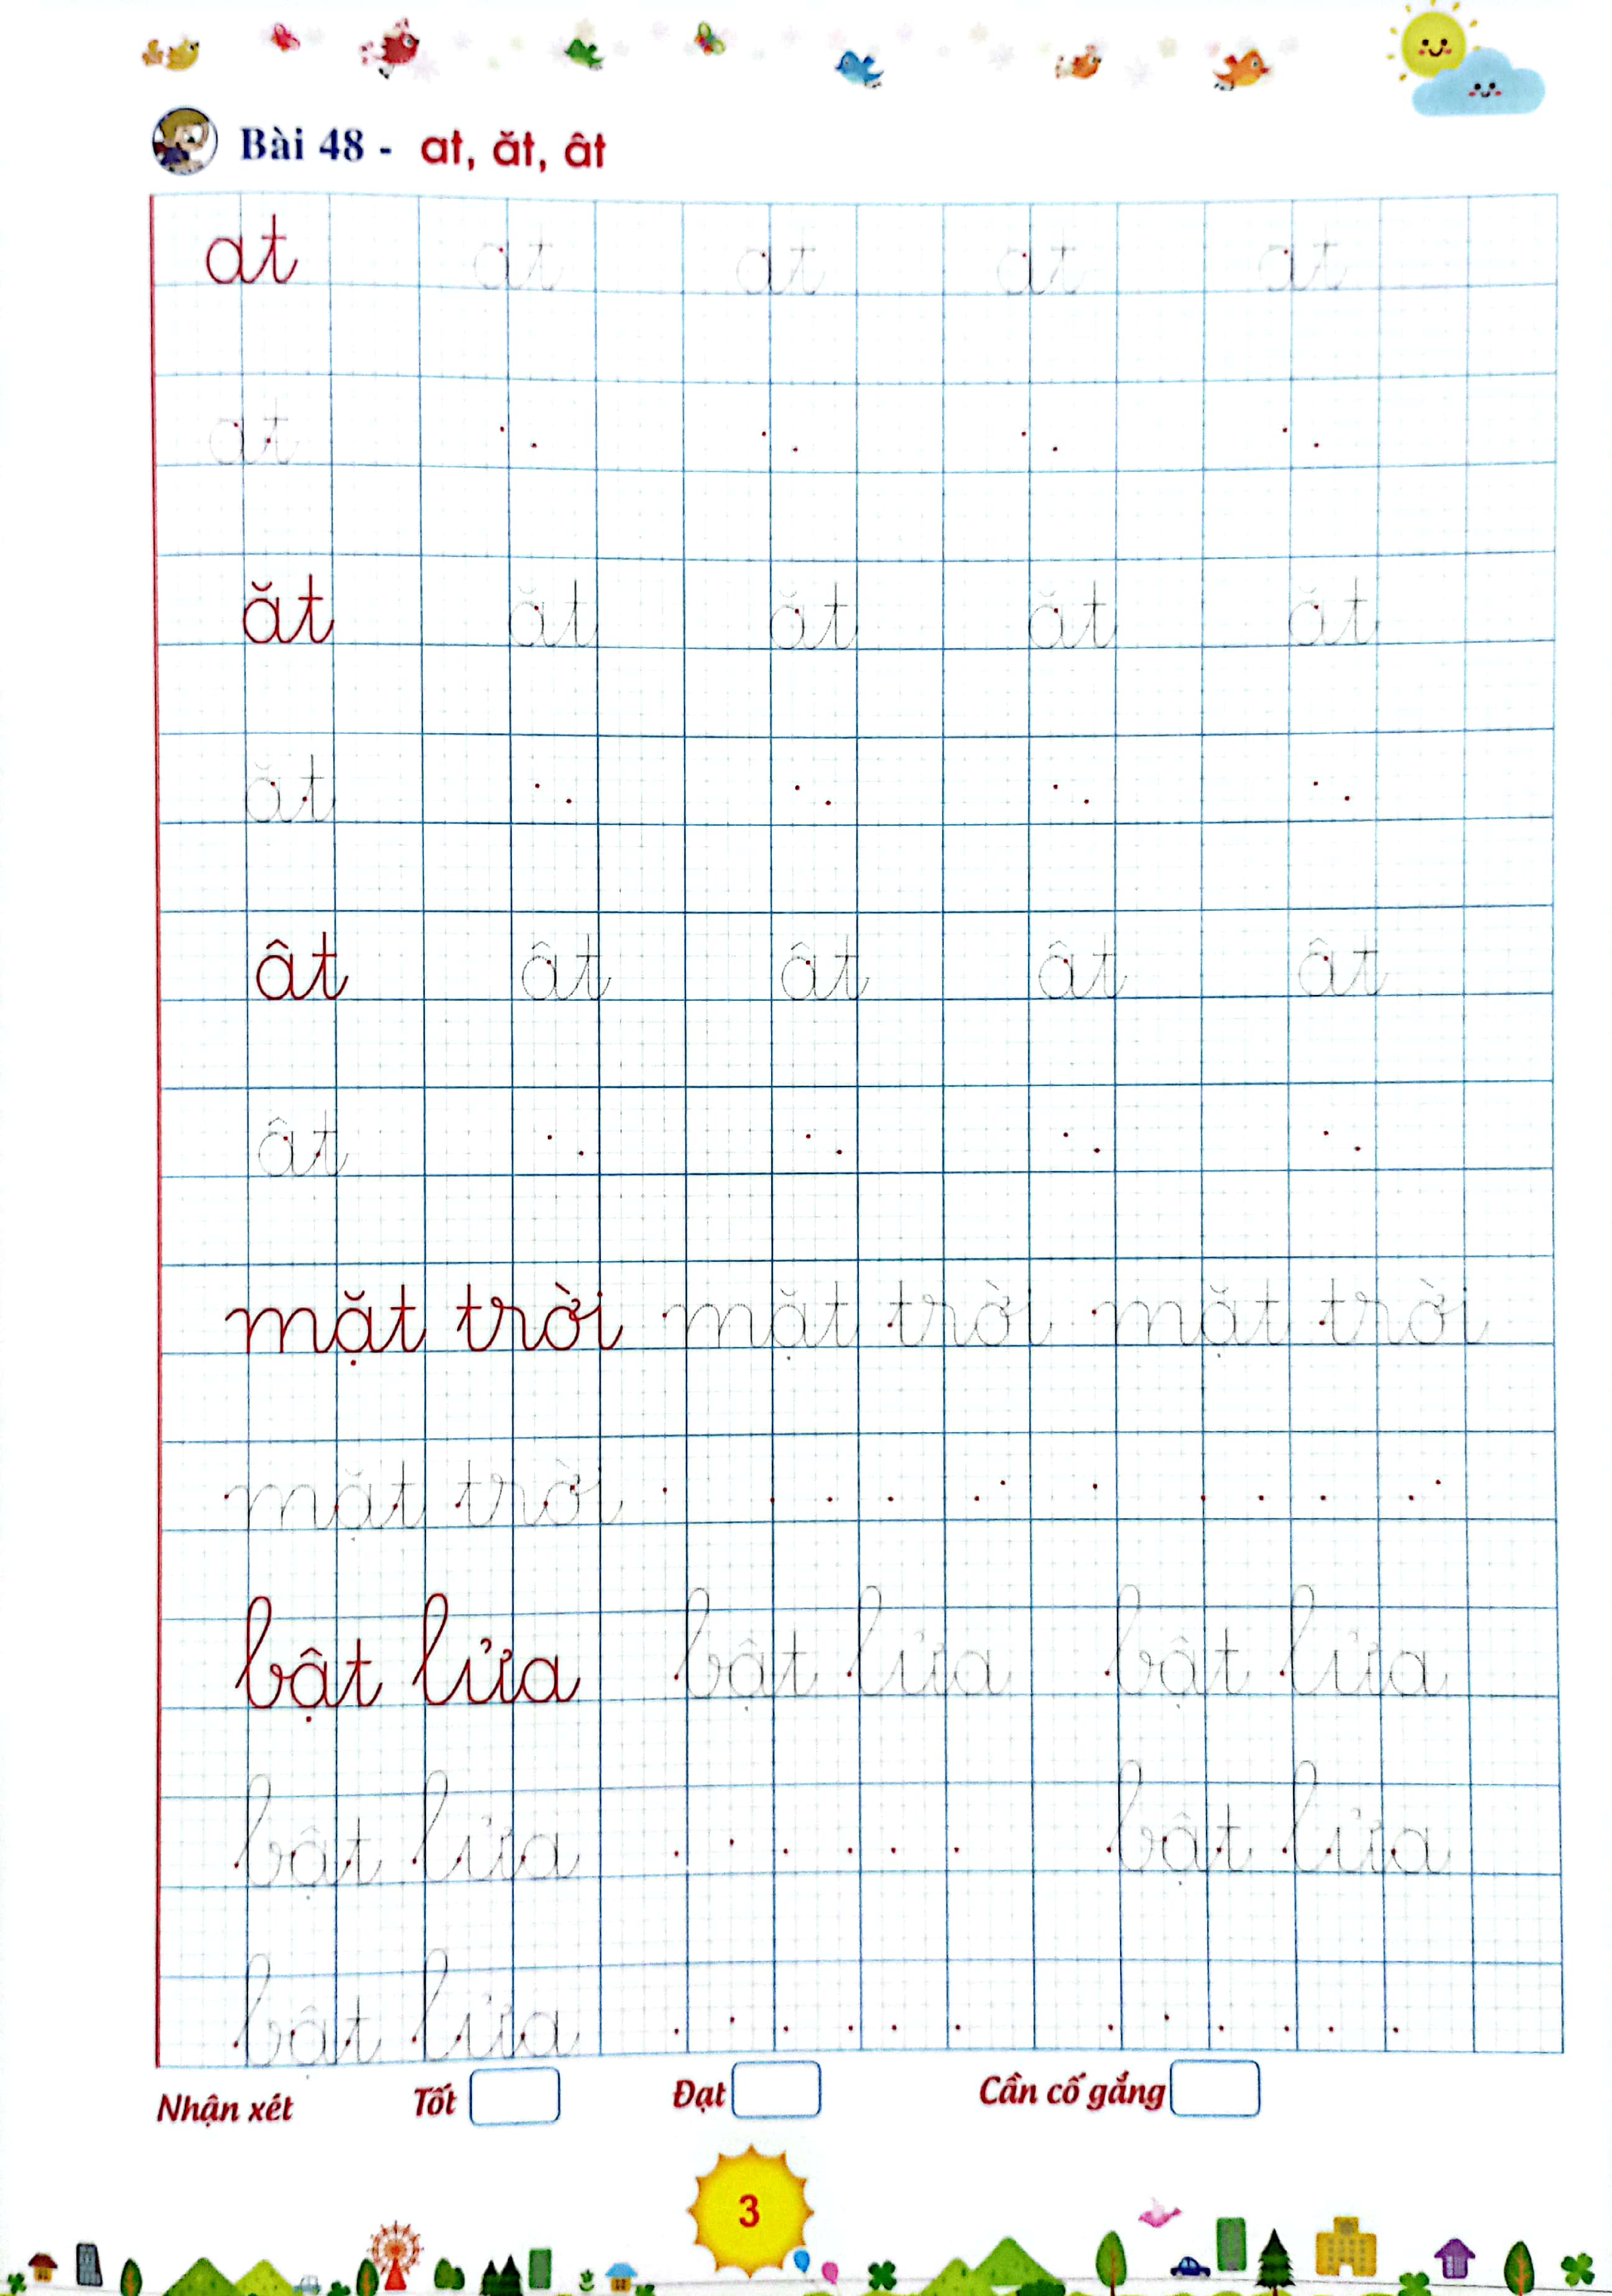 Bài 48 - at, ăt, ât
at at at at at
at
ăt ăt ăt ăt ăt
ăt
ât ât ât ât ât
ât
mặt trời mặt trời mặt trời
mặt trời
bật lửa bật lửa bật lửa
bật lửa bật lửa
bật lửa
Nhận xét Tốt Đạt Cần cố gắng
3